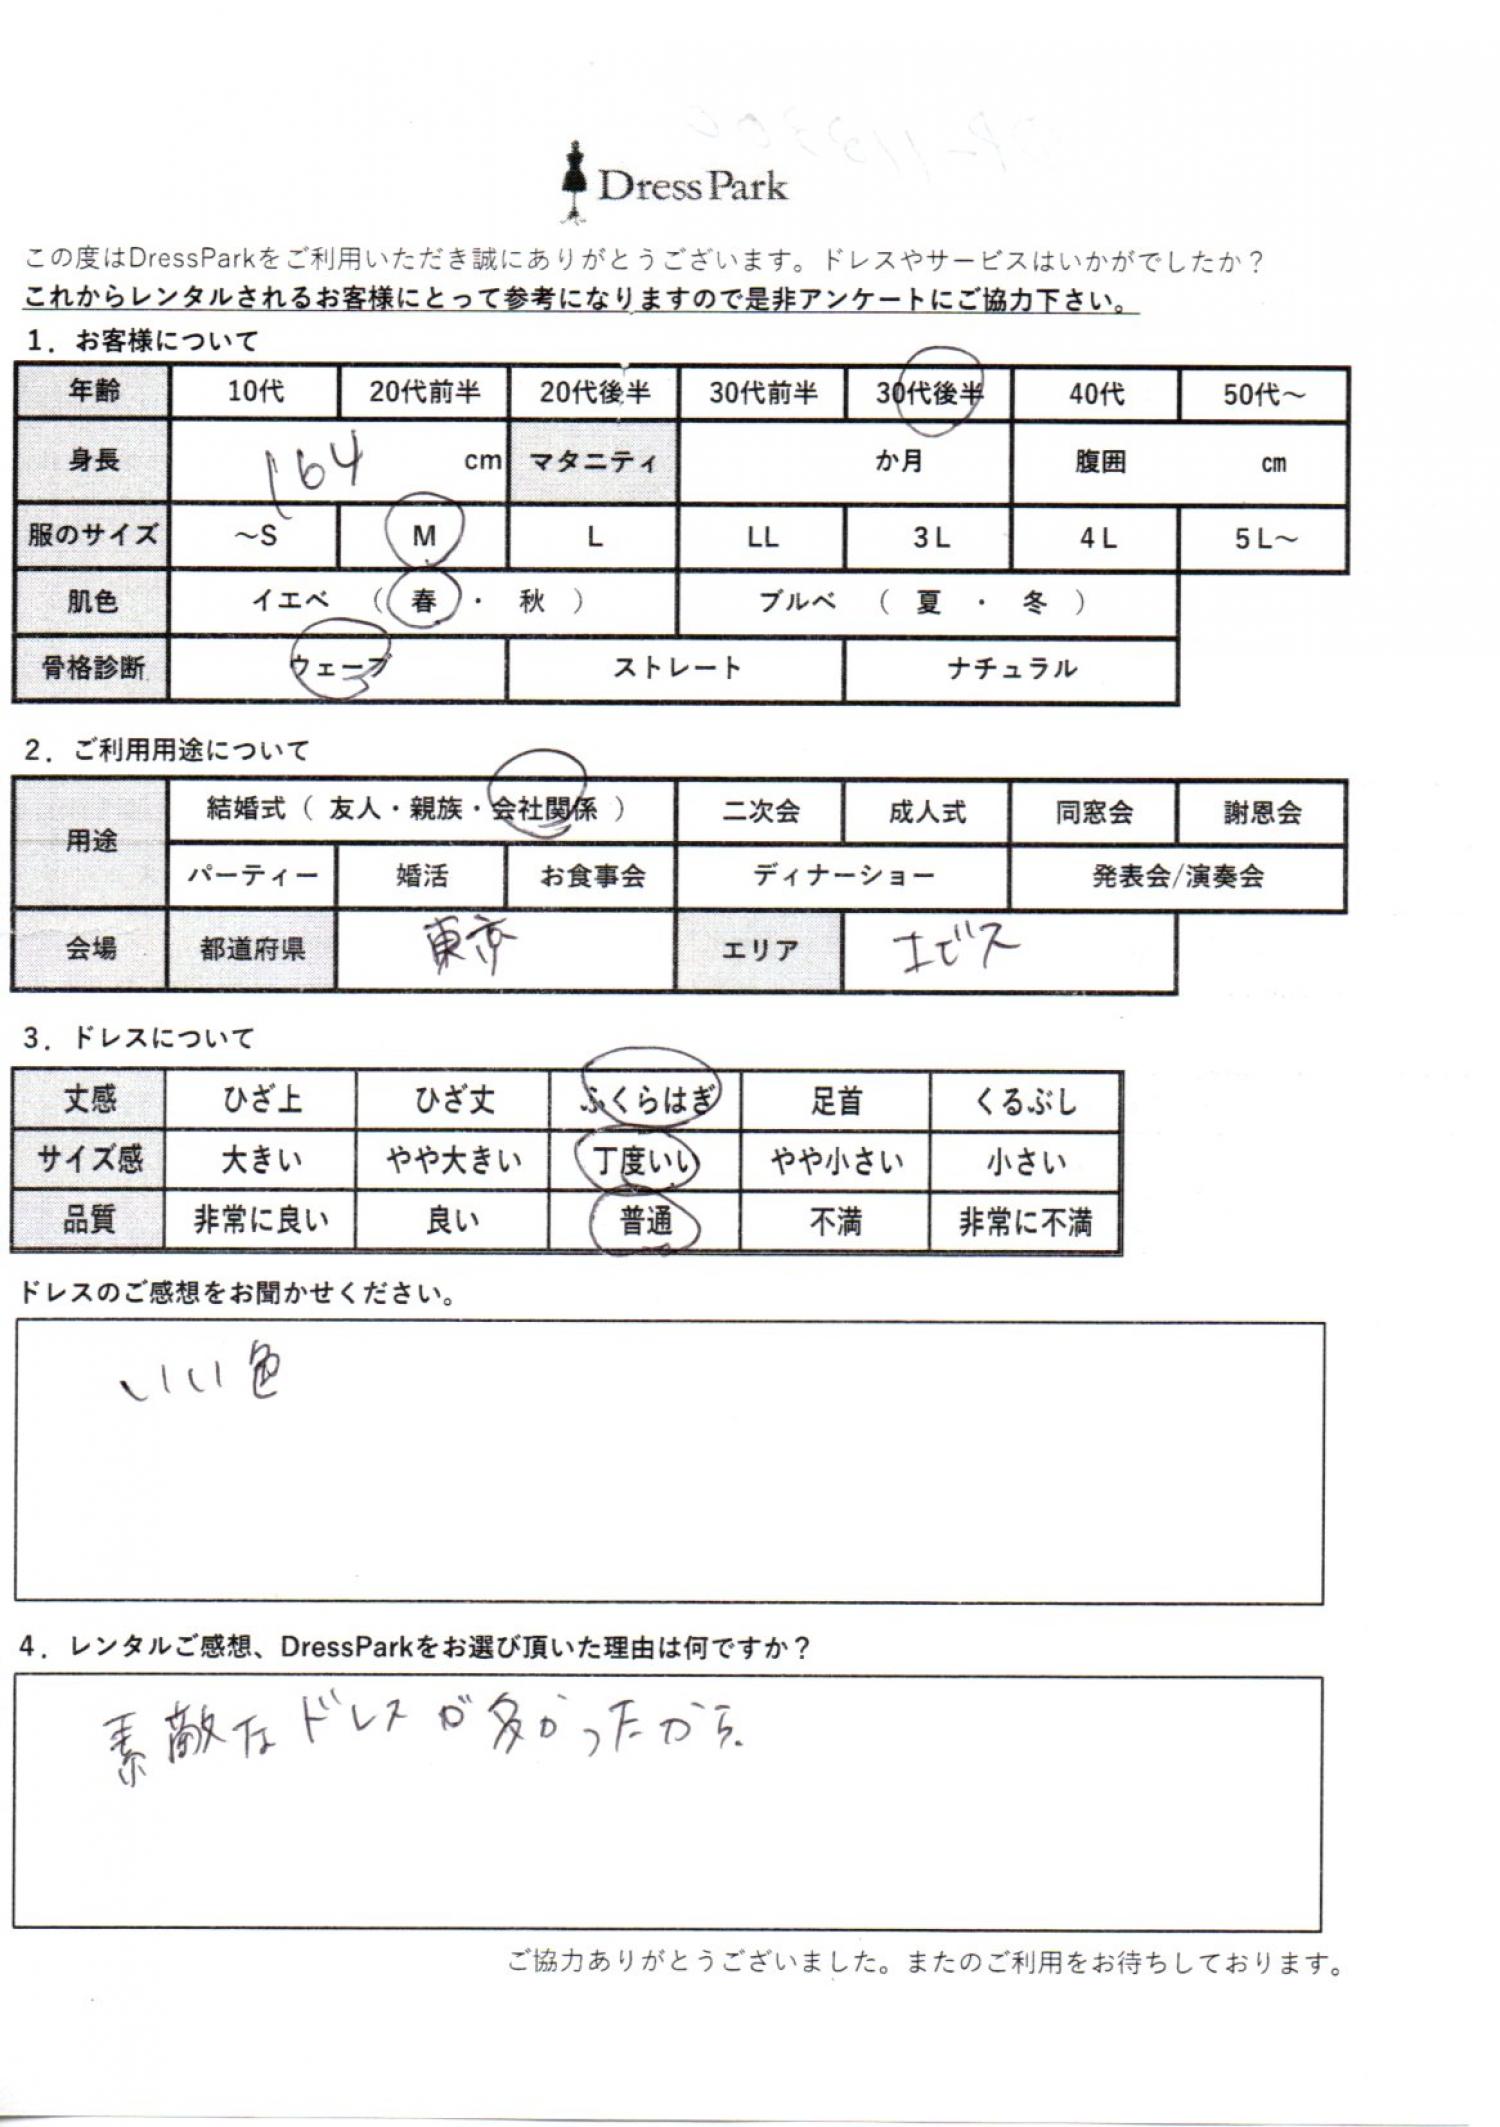 Dress Park
この度はDressParkをご利用いただき誠にありがとうございます。ドレスやサービスはいかがでしたか？
これからレンタルされるお客様にとって参考になりますので是非アンケートにご協力下さい。
1．お客様について
年齢 10代 20代前半 20代後半 30代前半 30代後半 40代 50代～
身長 164 cm マタニティ か月 腹囲 cm
服のサイズ ～S M L LL 3L 4L 5L～
肌色 イエベ （ 春 ・ 秋 ） ブルベ （ 夏 ・ 冬 ）
骨格診断 ウェーブ ストレート ナチュラル
2．ご利用用途について
用途 結婚式（ 友人・親族・会社関係 ） 二次会 成人式 同窓会 謝恩会
パーティー 婚活 お食事会 ディナーショー 発表会/演奏会
会場 都道府県 東京 エリア エビス
3．ドレスについて
丈感 ひざ上 ひざ丈 ふくらはぎ 足首 くるぶし
サイズ感 大きい やや大きい 丁度いい やや小さい 小さい
品質 非常に良い 良い 普通 不満 非常に不満
ドレスのご感想をお聞かせください。
いい色
4．レンタルご感想、DressParkをお選び頂いた理由は何ですか？
素敵なドレスが多かったから.
ご協力ありがとうございました。またのご利用をお待ちしております。